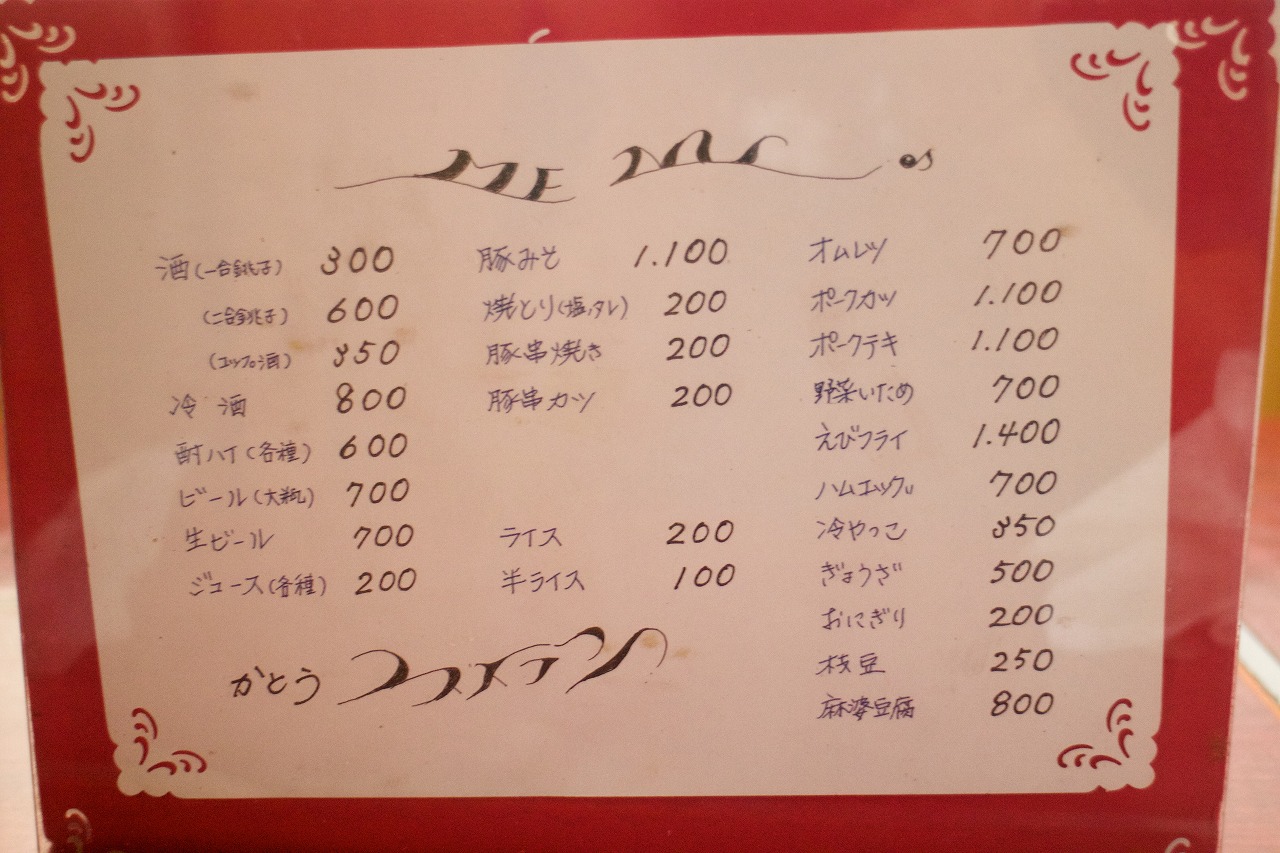 酒(一合銚子) 300
(二合銚子) 600
(コップ酒) 350
冷酒 800
酎ハイ(各種) 600
ビール(大瓶) 700
生ビール 700
ジュース(各種) 200
豚みそ 1.100
焼とり(塩,タレ) 200
豚串焼き 200
豚串カツ 200
ライス 200
半ライス 100
オムレツ 700
ポークカツ 1.100
ポークテキ 1.100
野菜いため 700
えびフライ 1.400
ハムエッグ 700
冷やっこ 350
ぎょうざ 500
おにぎり 200
枝豆 250
麻婆豆腐 800
かとう